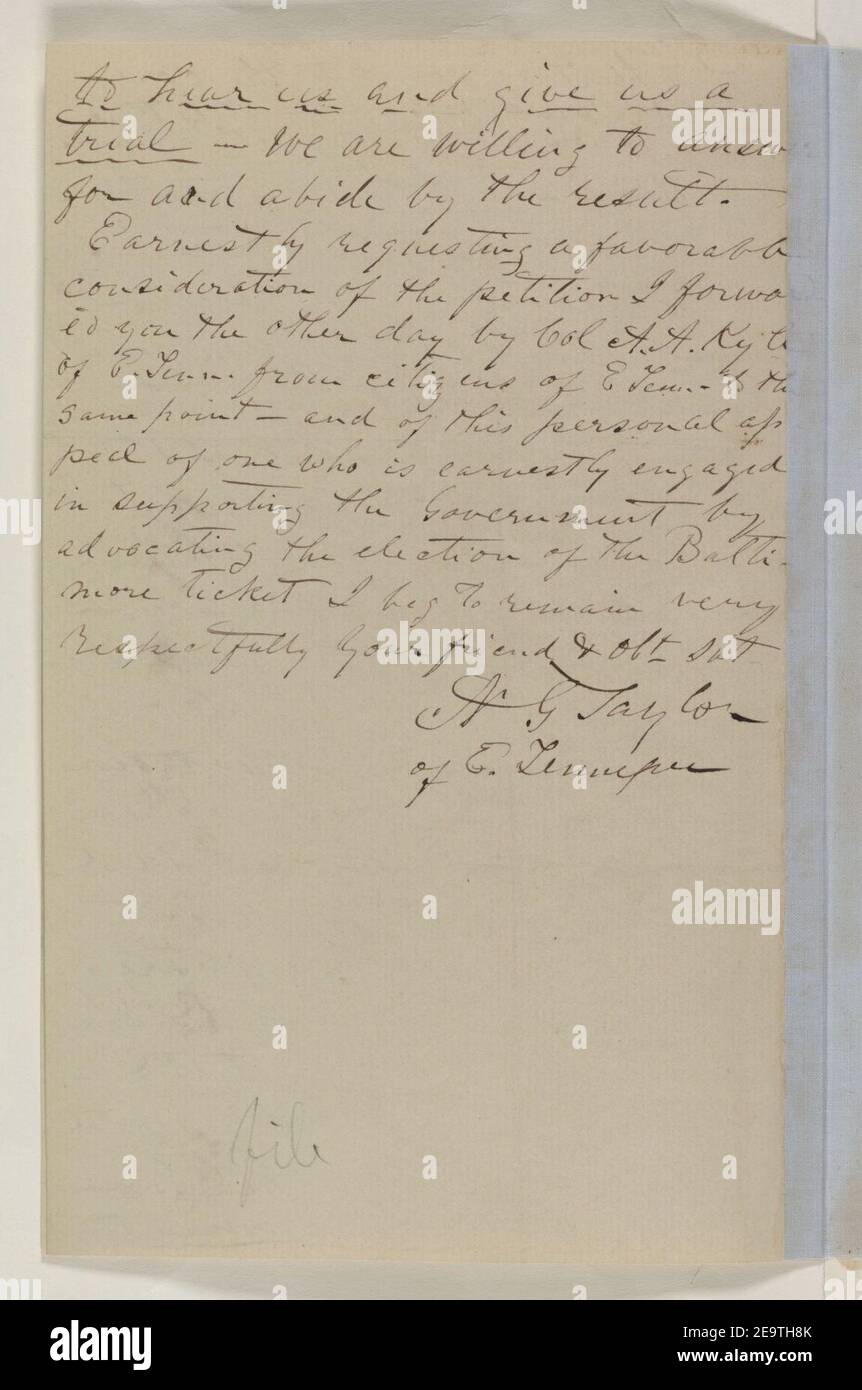 to hear us and give us a
trial — we are willing to answ
for and abide by the result.
Earnestly requesting a favorabl
consideration of the petition I forwa
ed you the other day by Col A. A. Kyle
of E. Tenn. from citizens of E Tenn. to the
same point — and of this personal ap
peal of one who is earnestly engaged
in supporting the Government by
advocating the election of the Balti-
more ticket I beg to remain very
respectfully Your friend & obt svt
N G Taylor
of E. Tennessee
file
alamy
Image ID: 2E9TH8K
www.alamy.com